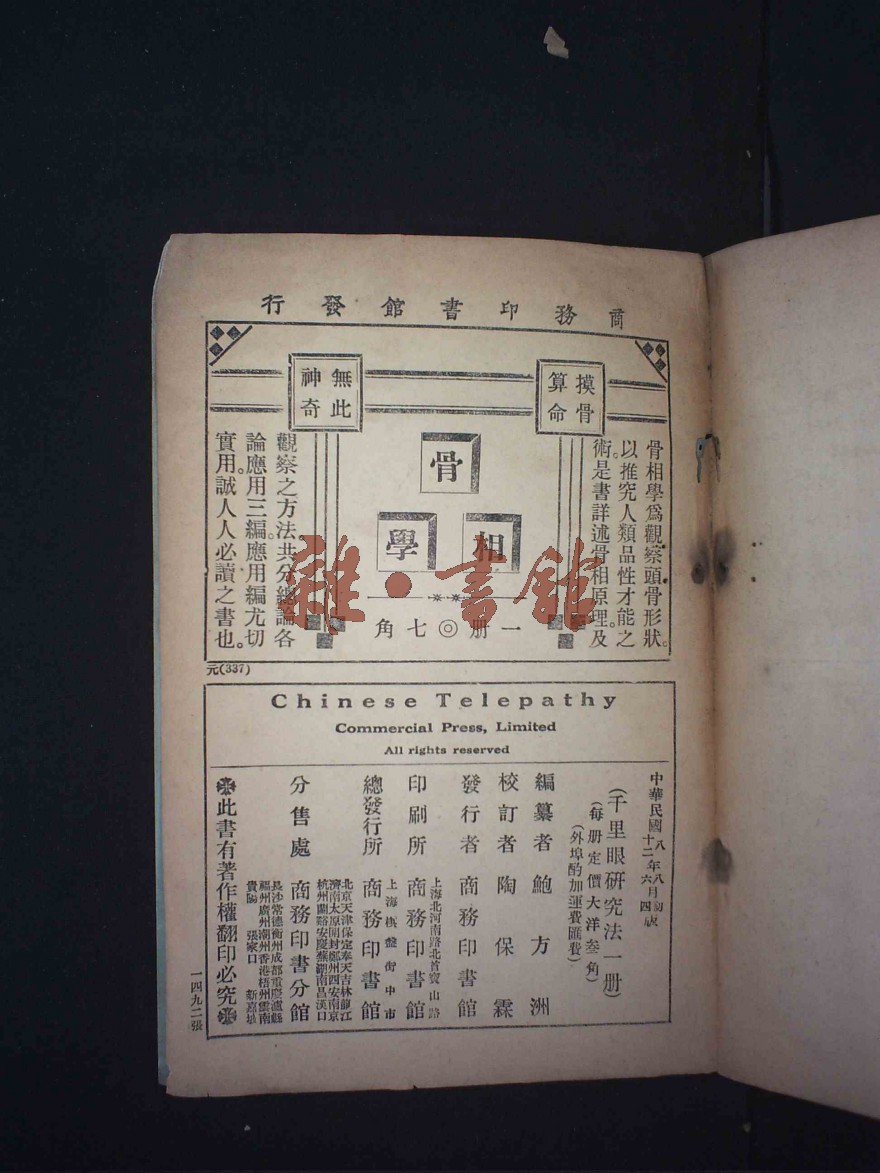 商務印書館發行
摸骨
算命
無此
神奇
骨相學爲觀察頭骨形狀。
以推究人類品性才能之
術。是書詳述骨相原理。及
骨
相
學
一册◎七角
觀察之方法共分總論各
論應用三編。應用編尤切
實用。誠人人必讀之書也。
雜·書館
元(337)
Chinese Telepathy
Commercial Press, Limited
All rights reserved
中華民國八年八月初版
十二年六月四版
(千里眼研究法一册)
(每册定價大洋叁角)
(外埠酌加運費匯費)
編纂者 鮑方洲
校訂者 陶保霖
發行者 商務印書館
上海北河南路北首寶山路
印刷所 商務印書館
上海棋盤街中市
總發行所 商務印書館
北京天津保定奉天吉林龍江
濟南太原開封鄭州西安南京
杭州蘭谿安慶蕪湖南昌漢口
分售處 商務印書分館
長沙常德衡州成都重慶瀘縣
福州廣州潮州香港梧州雲南
貴陽 張家口 新嘉坡
※此書有著作權翻印必究※
一四九二張